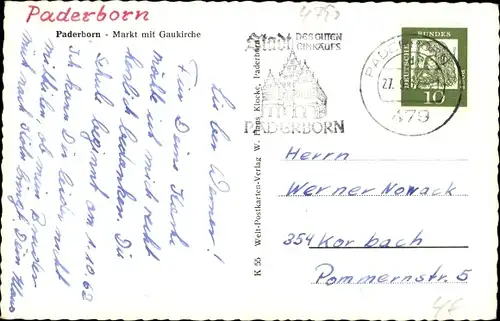 Paderborn
4790
Paderborn - Markt mit Gaukirche
Lieber Werner!
Für Deine Karte
möchte ich mich recht
herzlich bedanken. Die
Schule beginnt am 1.10.62
Ich kann Dir leider nicht
mitteilen ob mein Bruder
mit nach Köln bringt Dein Hans
K 55 Welt-Postkarten-Verlag W. Hans Klocke, Paderborn
Stadt DES GUTEN
EINKAUFS
PADERBORN
PADERBORN
27.
479
DEUTSCHE BUNDESPOST
10
Herrn
Werner Nowack
354 Korbach
Pommernstr. 5